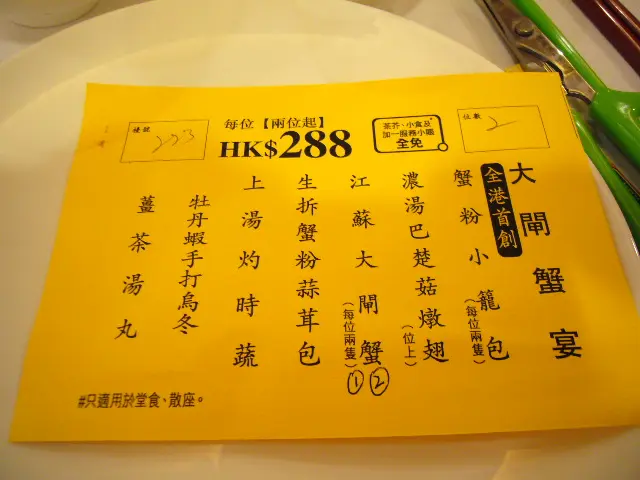 檯號
233
每位【兩位起】
HK$288
茶芥、小食及
加一服務小賬
全免
位數
2
大閘蟹宴
全港首創
蟹粉小籠包
(每位兩隻)
濃湯巴楚菇燉翅
(位上)
江蘇大閘蟹
(每位兩隻)
① ②
生拆蟹粉蒜茸包
上湯灼時蔬
牡丹蝦手打烏冬
薑茶湯丸
#只適用於堂食、散座。